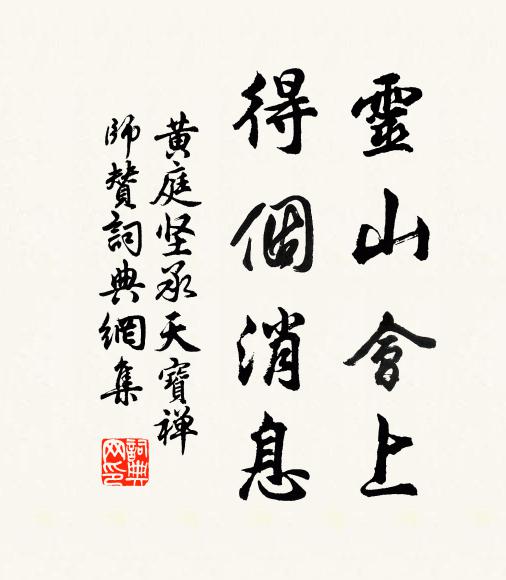 靈山會上
得個消息
黄庭坚承天寶禅
師贊詞典網集
詞典
网印